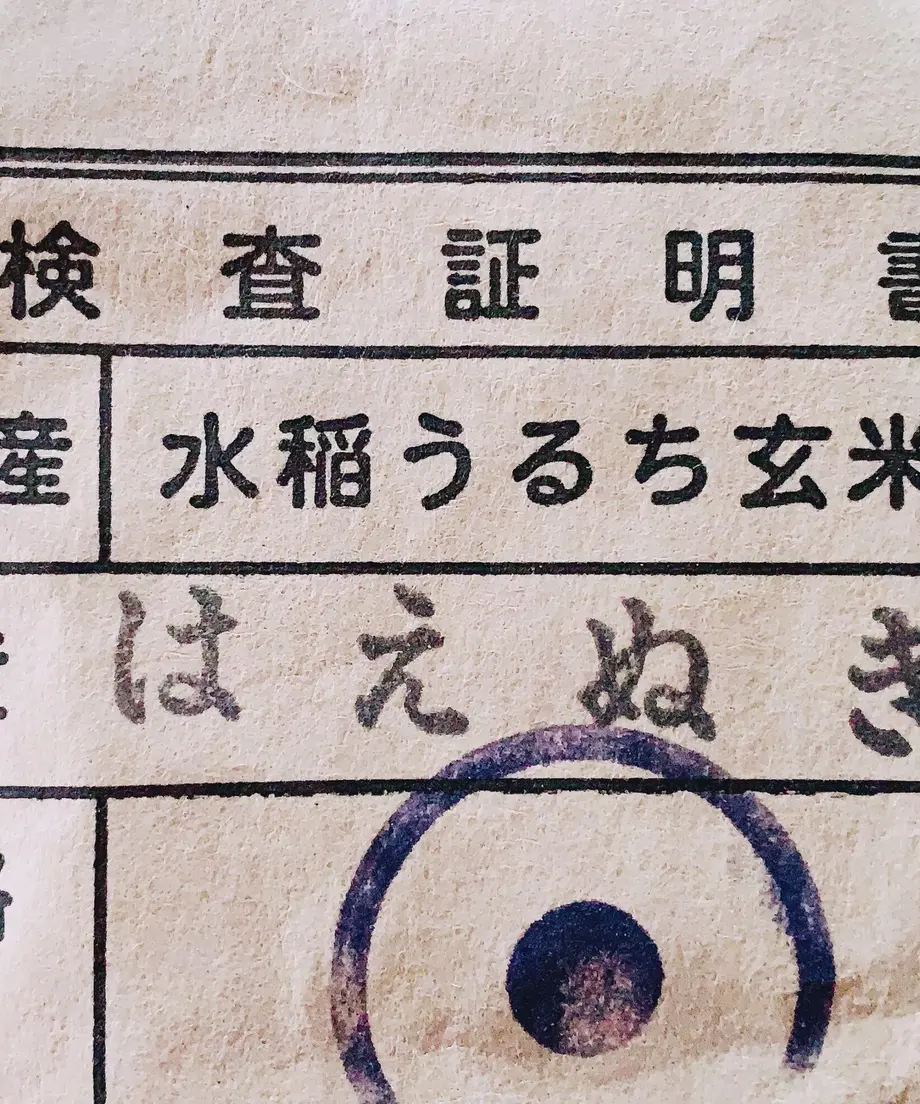 検査証明書
産 水稲うるち玄米
はえぬき